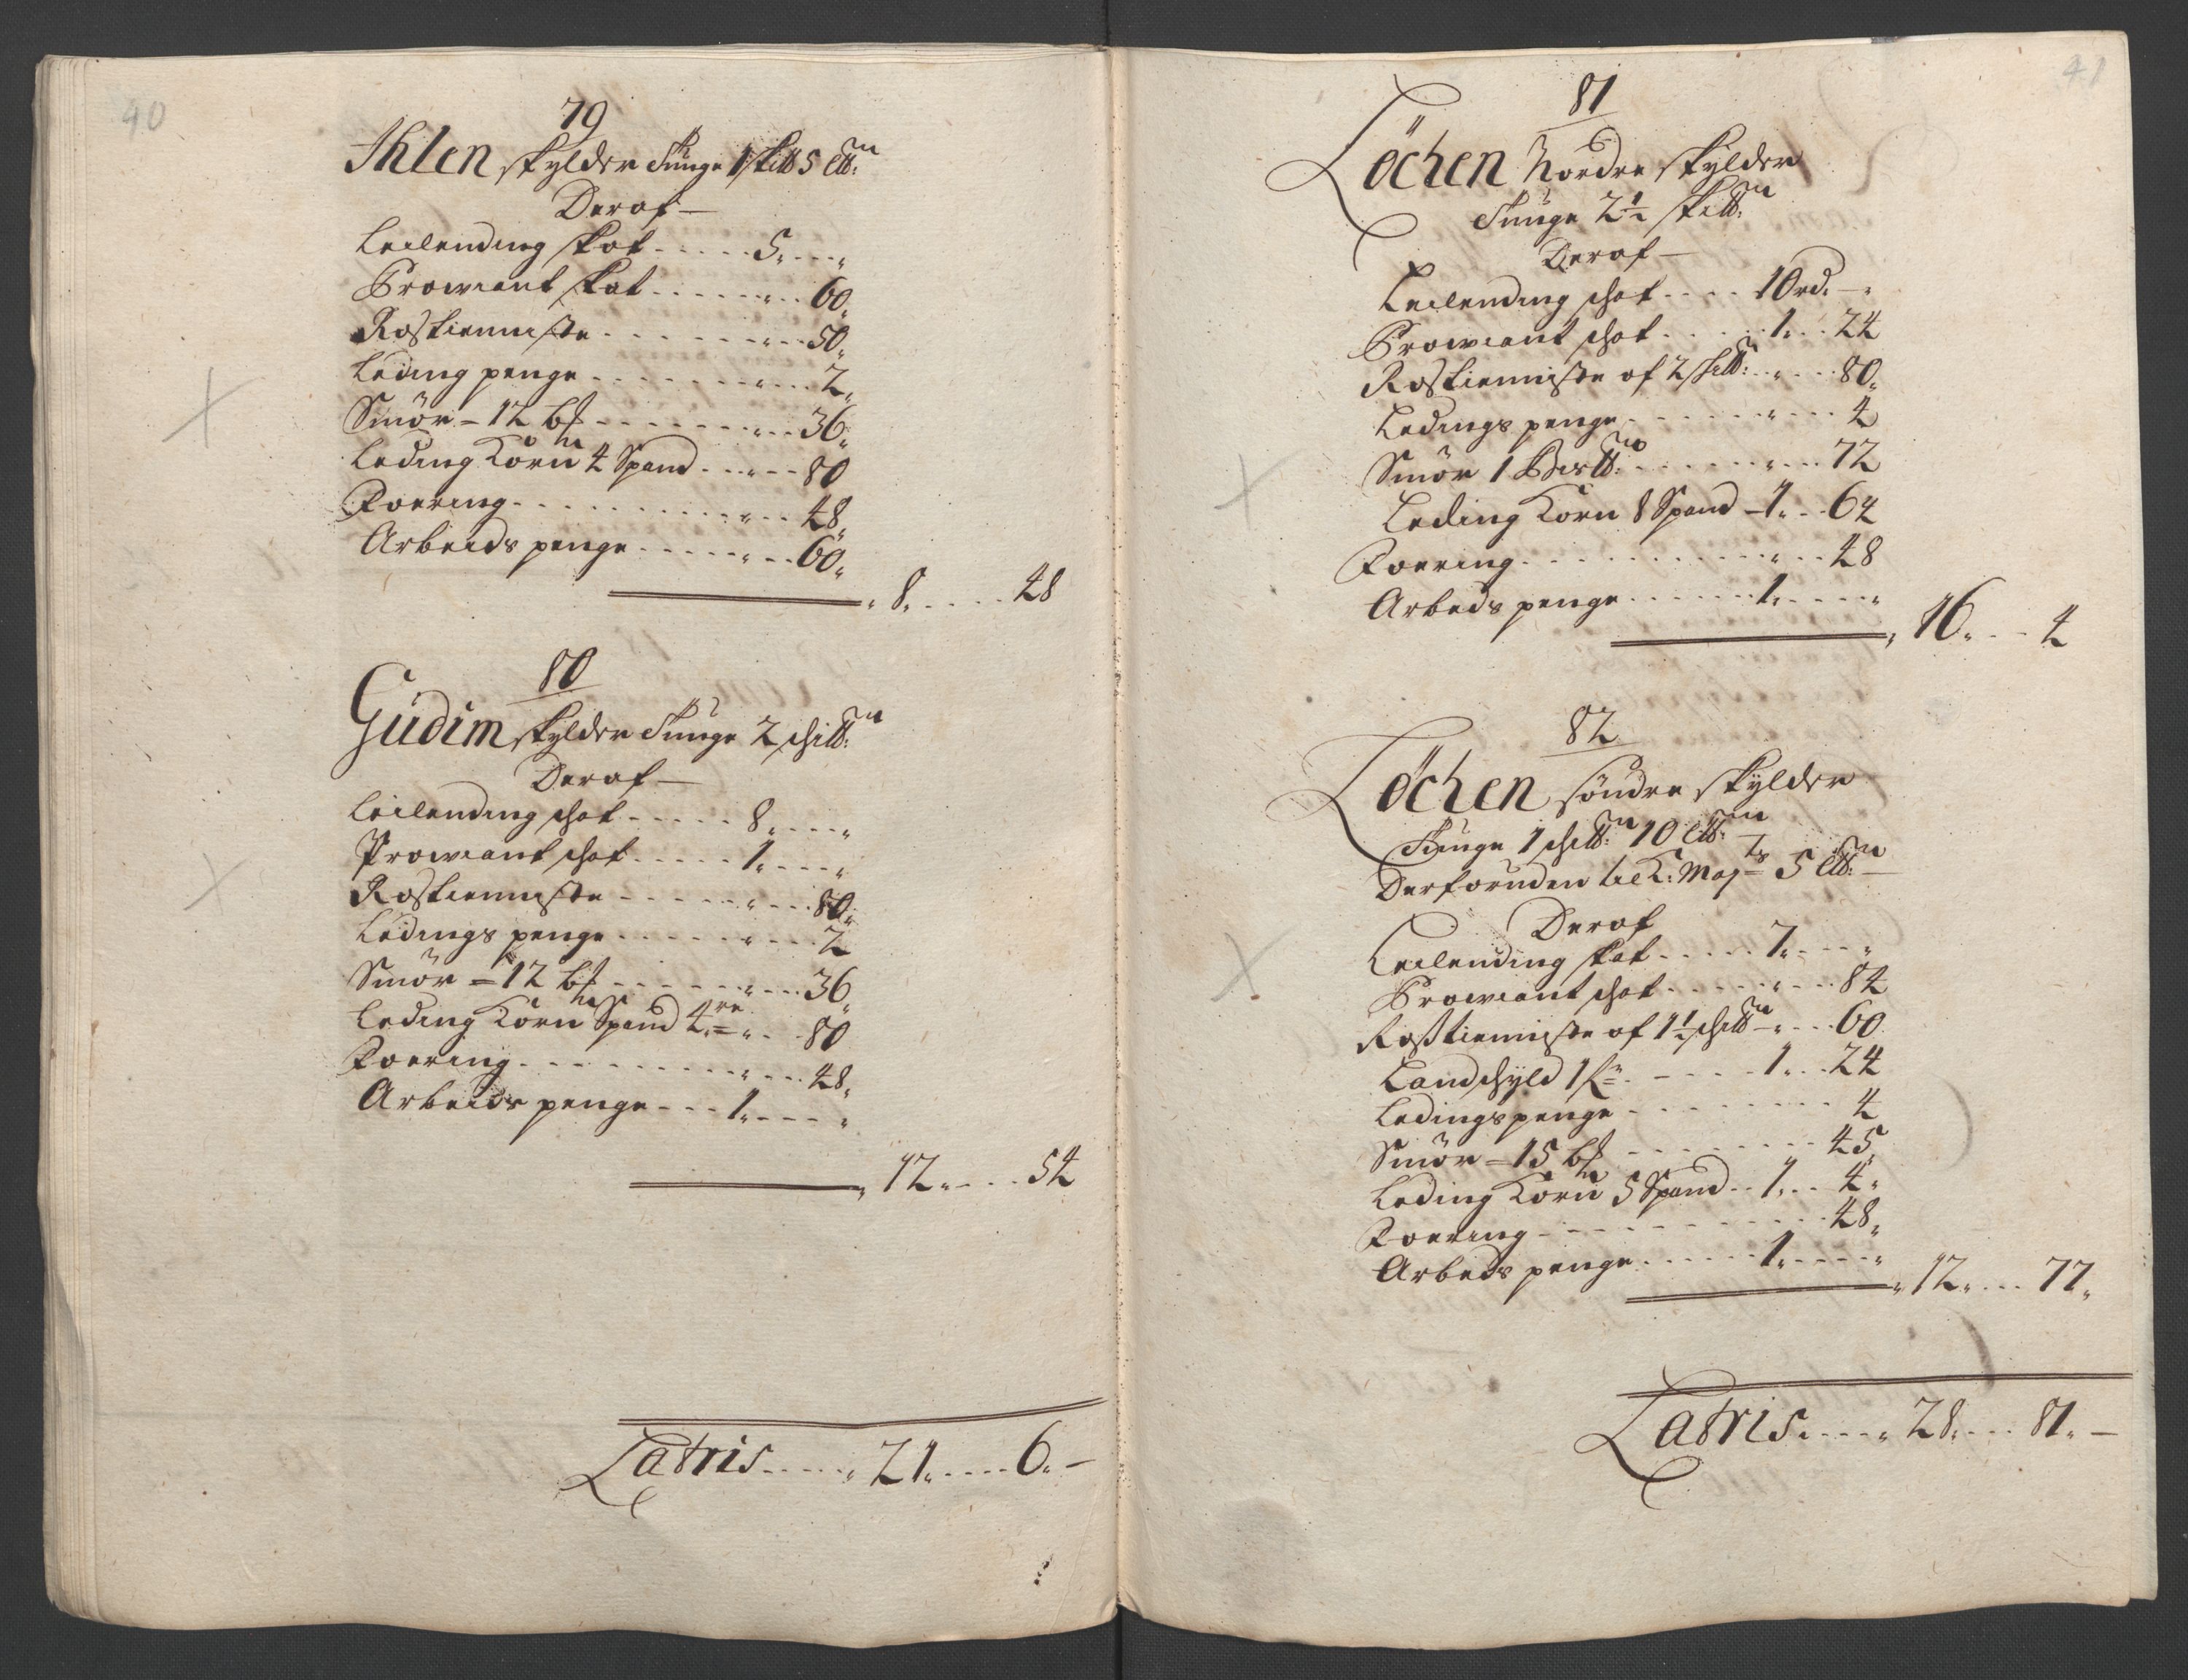 40
79
Ihlen skylder Tunge 1 skitt 5 Ltt:
Deraf
Leilending skat 5
Proviant skat 60
Rostienniste 50
Leding penge 2
Smör = 12 b℔ 36
Leding Korn 4 Spand 80
Foering 48
Arbeids penge 60
8 48
80
Gudim skylder Tunge 2 skitt:
Deraf
Leilending skat 8
Proviant skat 1
Rostienniste 80
Ledings penge 2
Smör = 12 b℔ 36
Leding Korn Spand 4re 80
Foering 48
Arbeids penge 1
12 54
Latris 21 6
41
81
Löchen Nordre skylder
Tunge 2½ skitt:
Deraf
Leilending skat 10 rd.
Proviant skat 1 24
Rostienniste af 2 skitt: 80
Ledings penge 4
Smör 1 Bis℔: 72
Leding Korn 8 Spand 1 64
Foering 48
Arbeds penge 1
16 4
82
Löchen söndre skylder
Tunge 1 skitt: 10 Ltt:
Derforuden til K: Maj ts 5 Ltt:
Deraf
Leilending skat 7
Proviant skat 84
Rostienniste af 1½ skitt 60
Landskyld 1 24
Ledings penge 4
Smör = 15 b℔ 45
Leding Korn 5 Spand 1 4
Foering 48
Arbeds penge 1
12 77
Latris 28 81